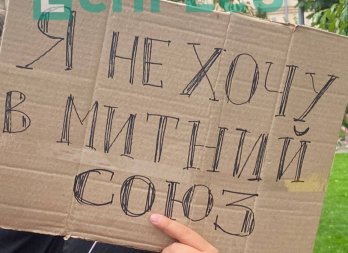 Я НЕ ХОЧУ
В МИТНИЙ
СОЮЗ